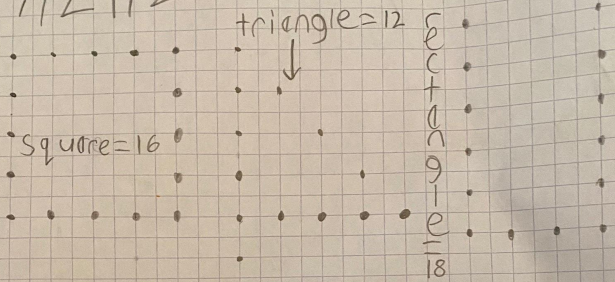 triangle=12
square=16
rectangle=18